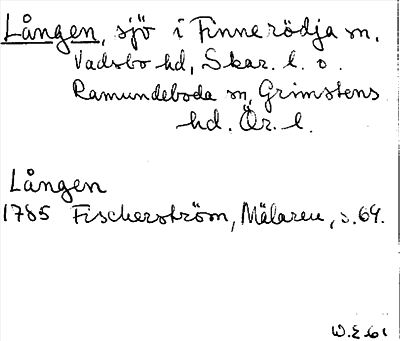 Lången, sjö i Finnerödja sn,
Vadsbo hd, Skar. l. o.
Ramundeboda sn, Grimstens
hd. Ör. l.
Lången
1785 Fischerström, Mälaren, s. 64.
W.E 61